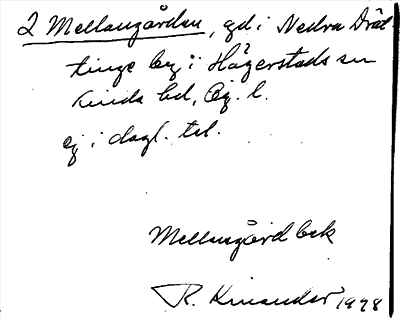 2 Mellangården, gd i Nedra Drät
tinge by i Hägerstads sn
Kinda hd, Ög. l.
ej i dagl. tal.
Mellangård bek
R. Kinander 1928